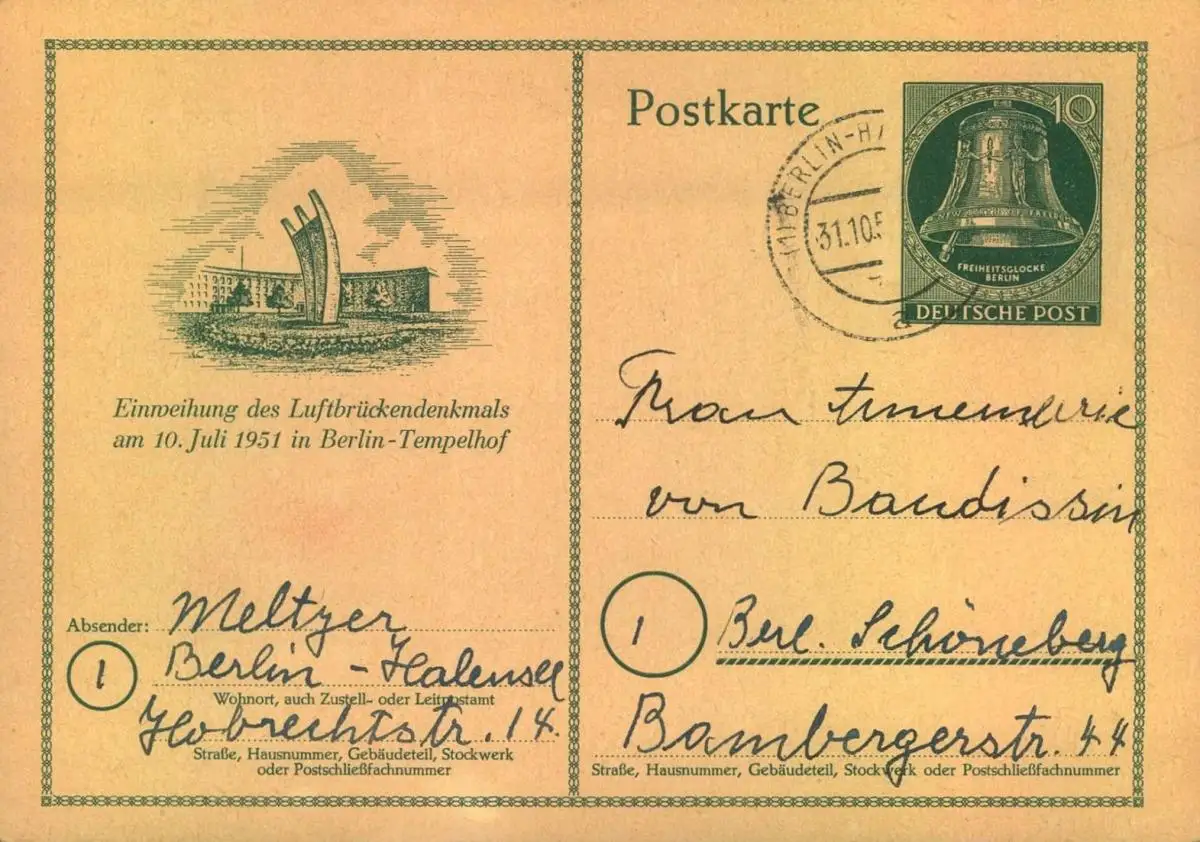 Postkarte
10
FREIHEITSGLOCKE
BERLIN
DEUTSCHE POST
(1) BERLIN-HA
31.10.5
a
Einweihung des Luftbrückendenkmals
am 10. Juli 1951 in Berlin-Tempelhof
Frau Annemarie
von Baudissin
1 Berl. Schöneberg
Bambergerstr. 44
Straße, Hausnummer, Gebäudeteil, Stockwerk oder Postschließfachnummer
Absender: Meltzer
1 Berlin-Halensee
Wohnort, auch Zustell- oder Leitpostamt
Hobrechtstr. 14.
Straße, Hausnummer, Gebäudeteil, Stockwerk
oder Postschließfachnummer